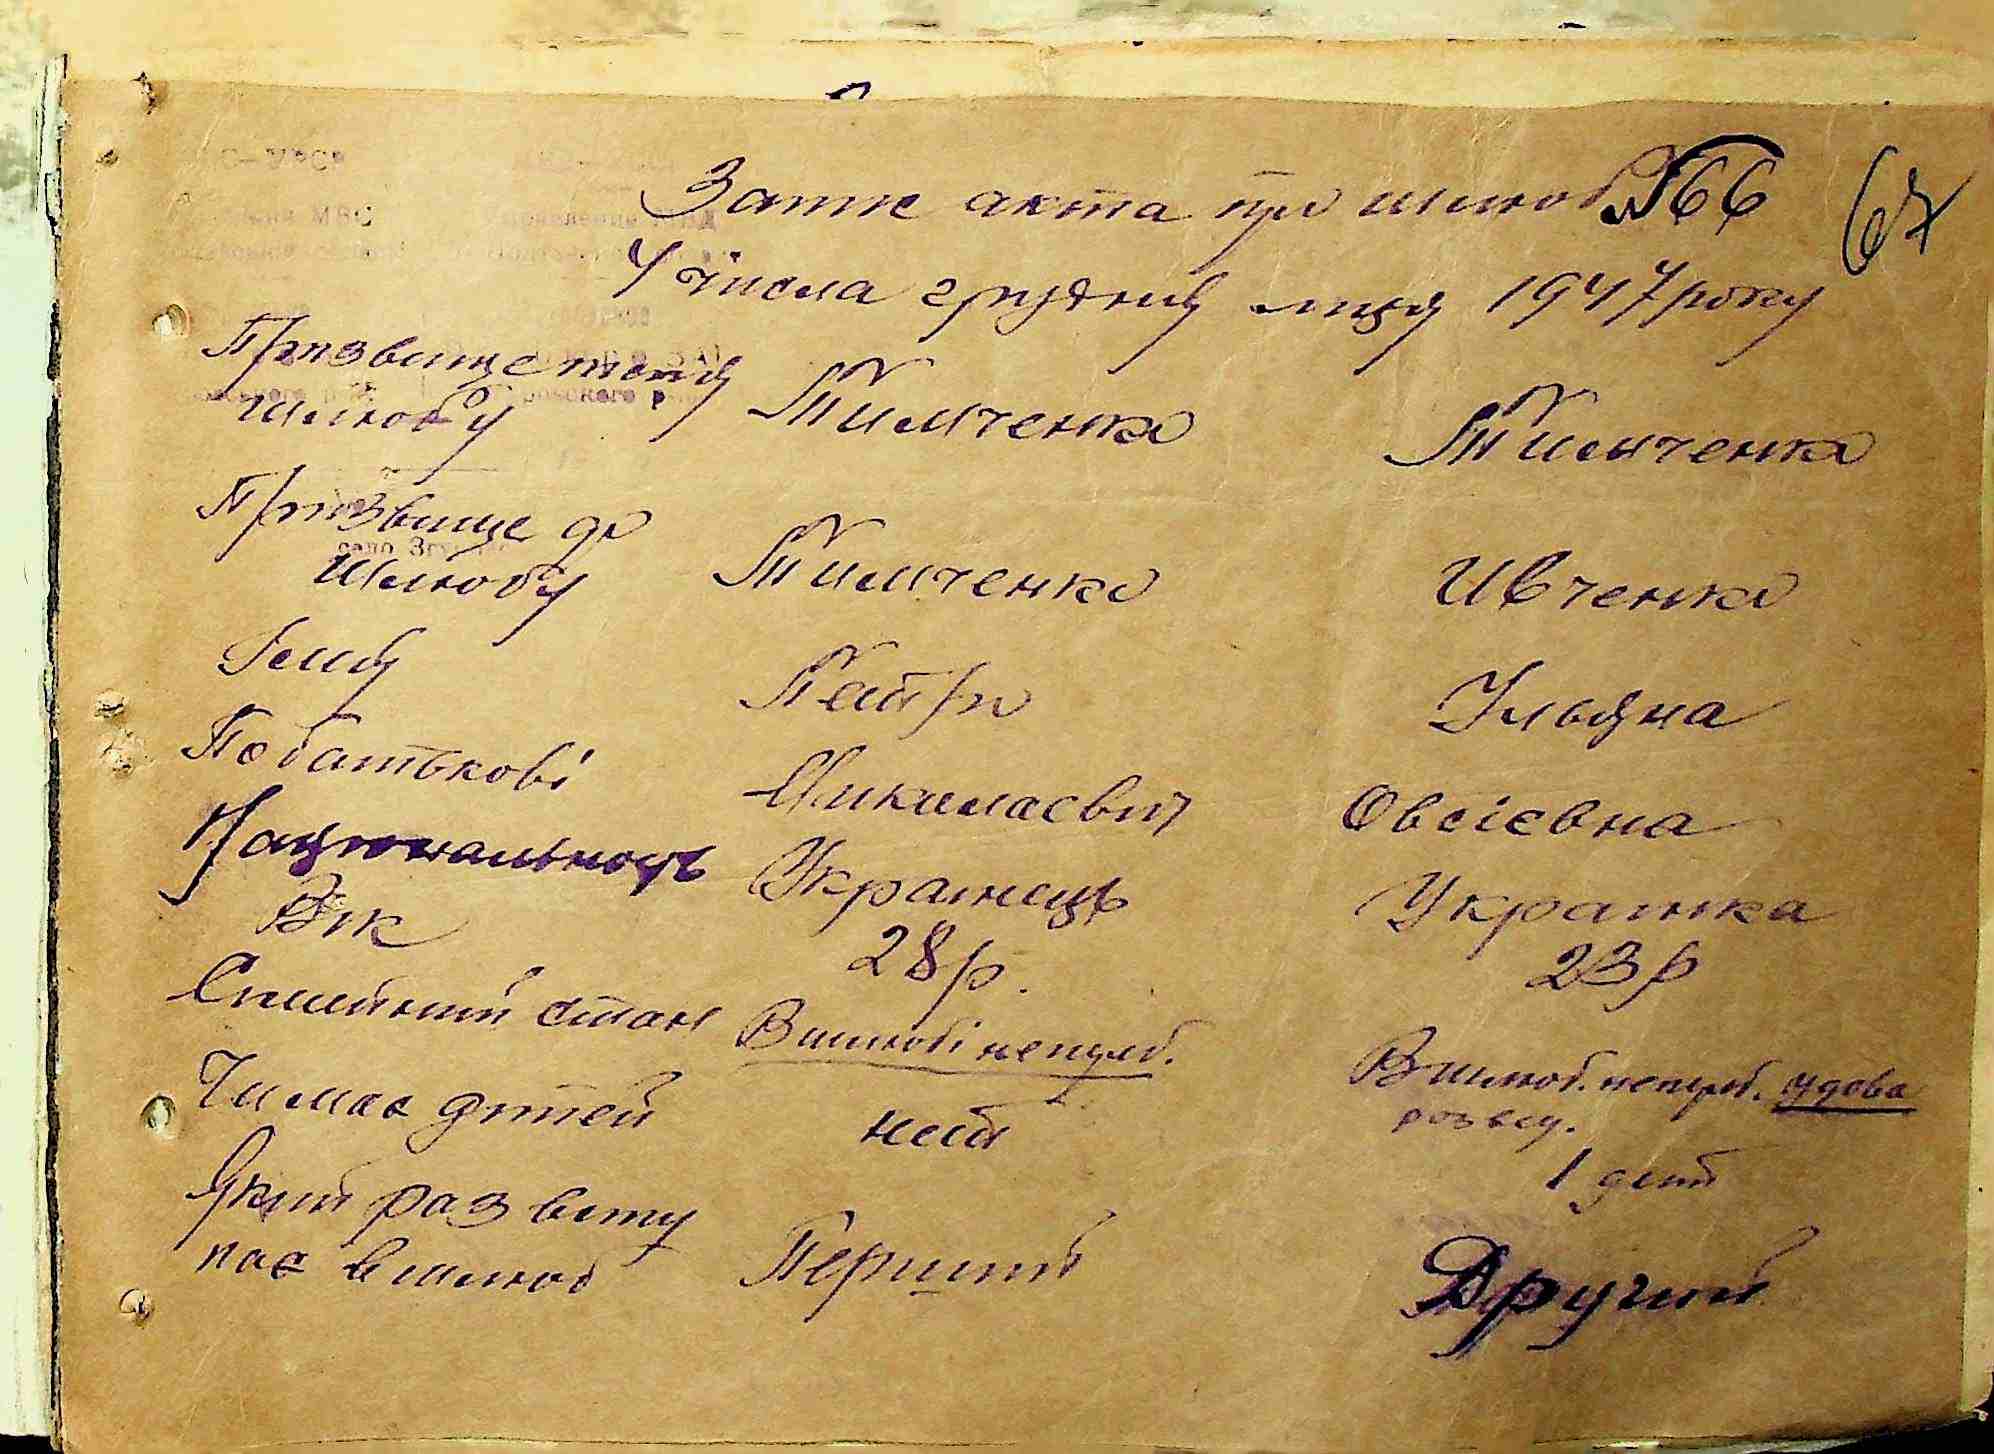 Запис акта про шлюб №66
67
4 числа грудня м-ця 1947 року
Призвище після шлюбу Тимченко Тимченко
Призвище до шлюбу Тимченко Ивченко
Імя Петро Ульяна
Побатькові Миколаєвич Овсієвна
Національность Українець Українка
Вік 28 р. 23 р
Сімейний стан В шлюбі непереб. В шлюб. непереб. удова розвед.
Чи має дітей нет 1 дит
Який раз всту
пає в шлюб Перший Другий